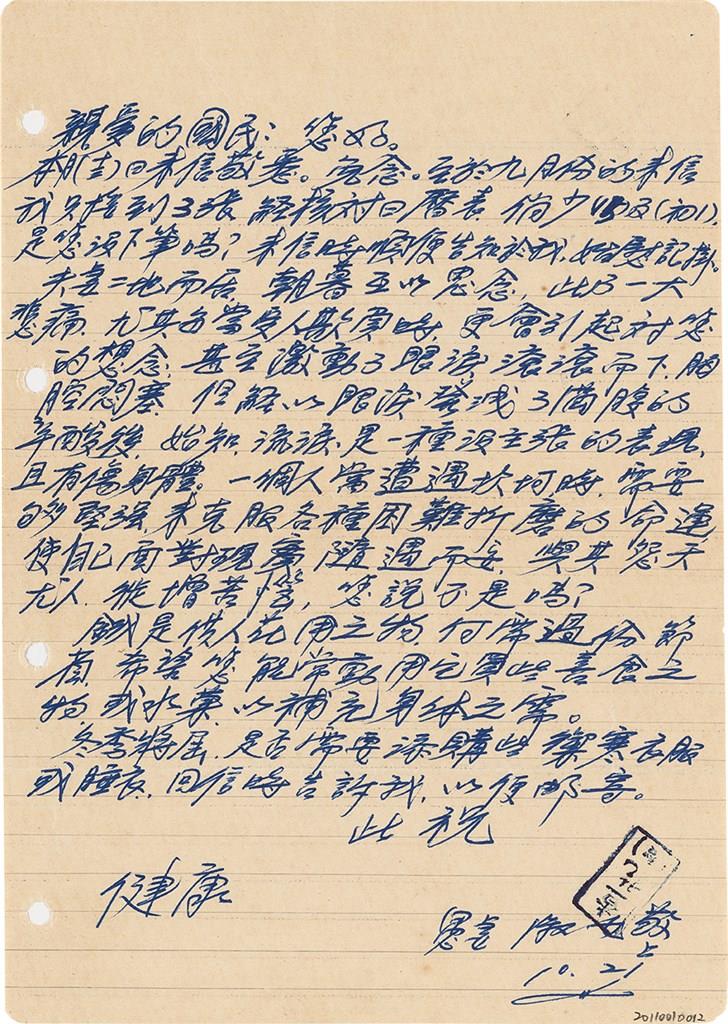 親爱的國民：您好。
本月(吉)日來信敬悉。完念。至於九月份的來信
我只接到3張，経核対日曆表，倘少15及(初1)，
是您没下筆嗎？來信時順便告知於我，始慰記掛，
夫妻二地而居，朝暮互以思念，此乃一大
悲痛，尤其每當受人欺負時，更會引起対您
的想念，甚至激動了眼淚滚滚而下，胸
腔悶塞，但経以眼淚發洩了满腹的
辛酸後，始知，流淚，是一種没主张的表現，
且有傷身體。一個人當遭遇坎坷時，需要
够堅强，來克服各種困難折磨的命運
使自己面對現實，隨遇而安，與其怨天
尤人，徙增苦惱，您說不是嗎？
錢是供人花用之物，何需過份節
省，希望您能常動用它買些善食之
物或水菓，以補充身体之需。
冬季將屆，是否需要添購些禦寒衣服
或睡衣，回信時告訴我，以便邮寄。
此祝
健康
愚妻 敬上
10.21
20110010012